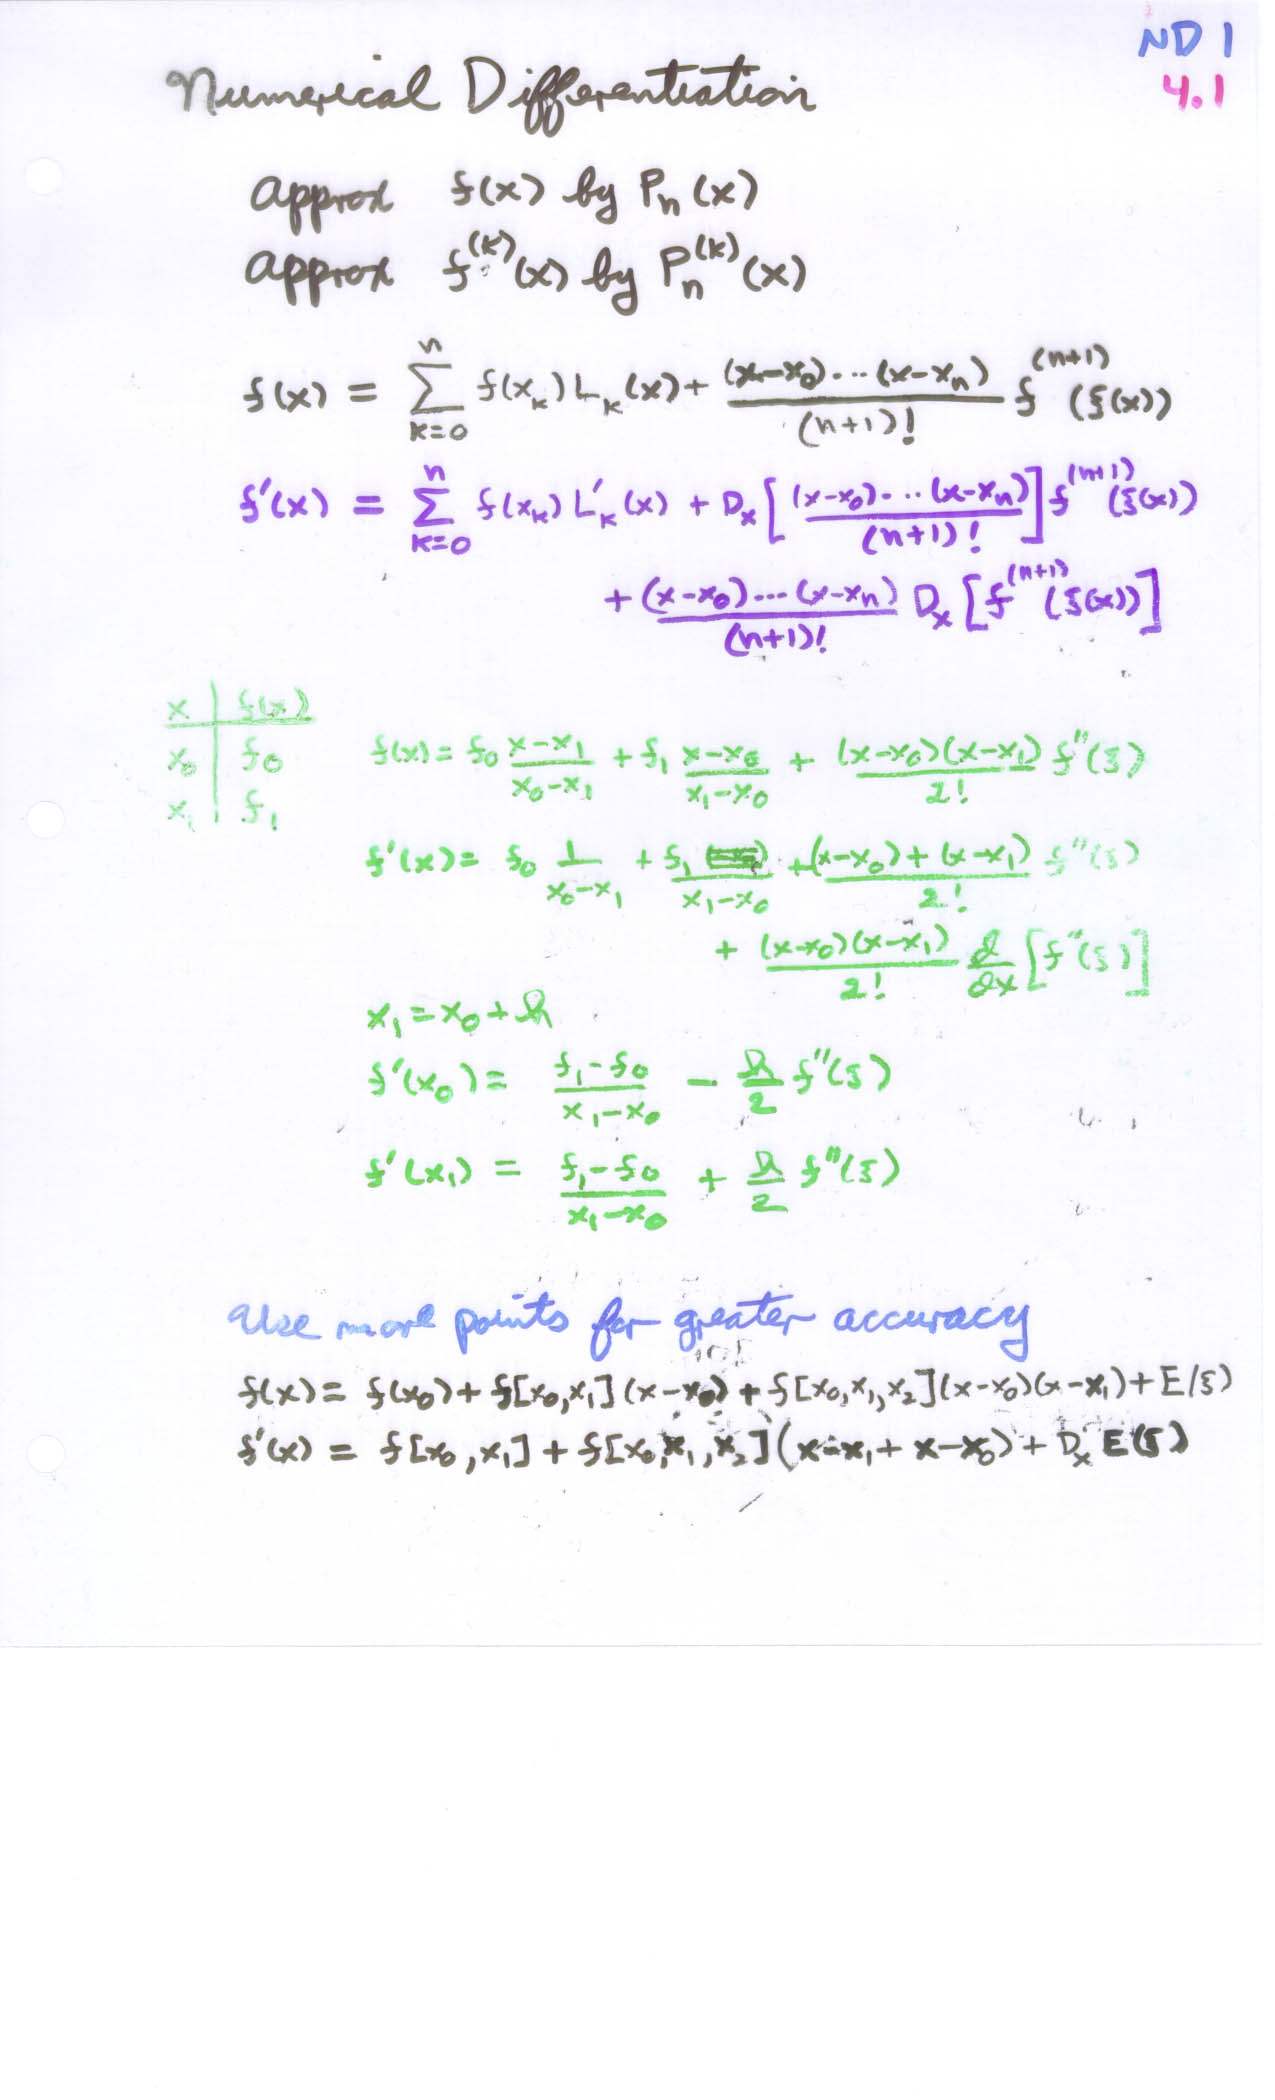 ND 1
4.1
Numerical Differentiation
approx f(x) by Pₙ(x)
approx f⁽ᵏ⁾(x) by Pₙ⁽ᵏ⁾(x)
f(x) = ∑_{k=0}^{n} f(xₖ) Lₖ(x) + \frac{(x-x₀)⋯(x-xₙ)}{(n+1)!} f^{(n+1)}(ξ(x))
f'(x) = ∑_{k=0}^{n} f(xₖ) L'ₖ(x) + Dₓ[\frac{(x-x₀)⋯(x-xₙ)}{(n+1)!}] f^{(n+1)}(ξ(x))
+ \frac{(x-x₀)⋯(x-xₙ)}{(n+1)!} Dₓ[f^{(n+1)}(ξ(x))]
x | f(x)
x₀ | f₀
x₁ | f₁
f(x) = f₀ \frac{x-x₁}{x₀-x₁} + f₁ \frac{x-x₀}{x₁-x₀} + \frac{(x-x₀)(x-x₁)}{2!} f''(ξ)
f'(x) = f₀ \frac{1}{x₀-x₁} + \frac{f₁}{x₁-x₀} + \frac{(x-x₀)+(x-x₁)}{2!} f''(ξ)
+ \frac{(x-x₀)(x-x₁)}{2!} \frac{d}{dx}[f''(ξ)]
x₁ = x₀ + h
f'(x₀) = \frac{f₁-f₀}{x₁-x₀} - \frac{h}{2} f''(ξ)
f'(x₁) = \frac{f₁-f₀}{x₁-x₀} + \frac{h}{2} f''(ξ)
Use more points for greater accuracy
f(x) = f(x₀) + f[x₀,x₁](x-x₀) + f[x₀,x₁,x₂](x-x₀)(x-x₁) + E(ξ)
f'(x) = f[x₀,x₁] + f[x₀,x₁,x₂](x-x₁+x-x₀) + Dₓ E(ξ)